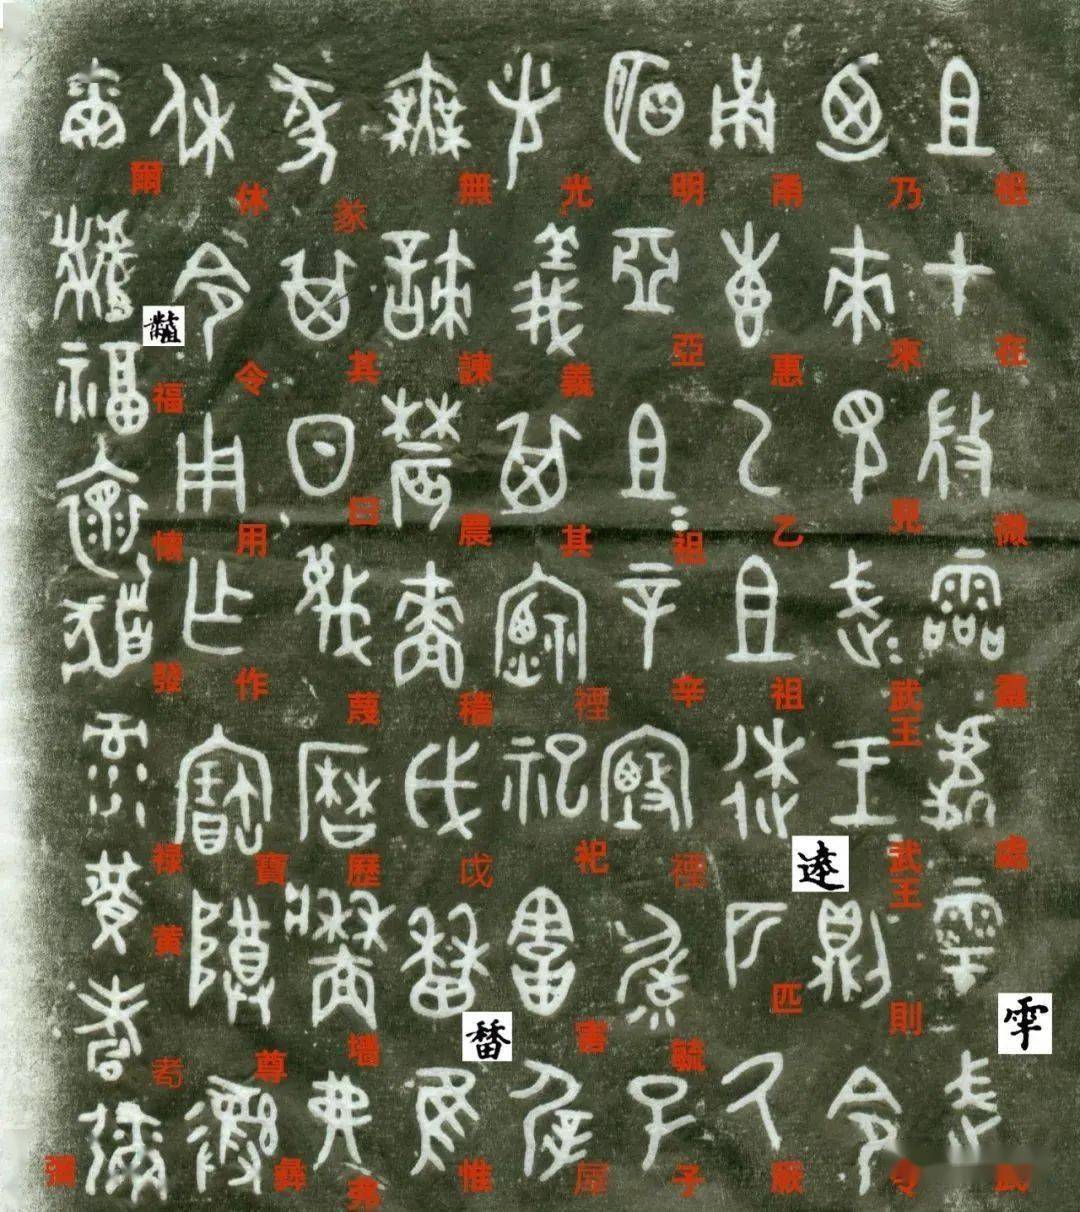 祖在微靈處雩武
乃來見武王武王則令
甬惠乙祖逹匹厥
明亞祖辛禋毓子
光義其禋祀害屖
無諫農穡戉惟
㒸其曰蔑歷墻弗
休令用作寶尊彝
爾福懷發祿黃耇彌